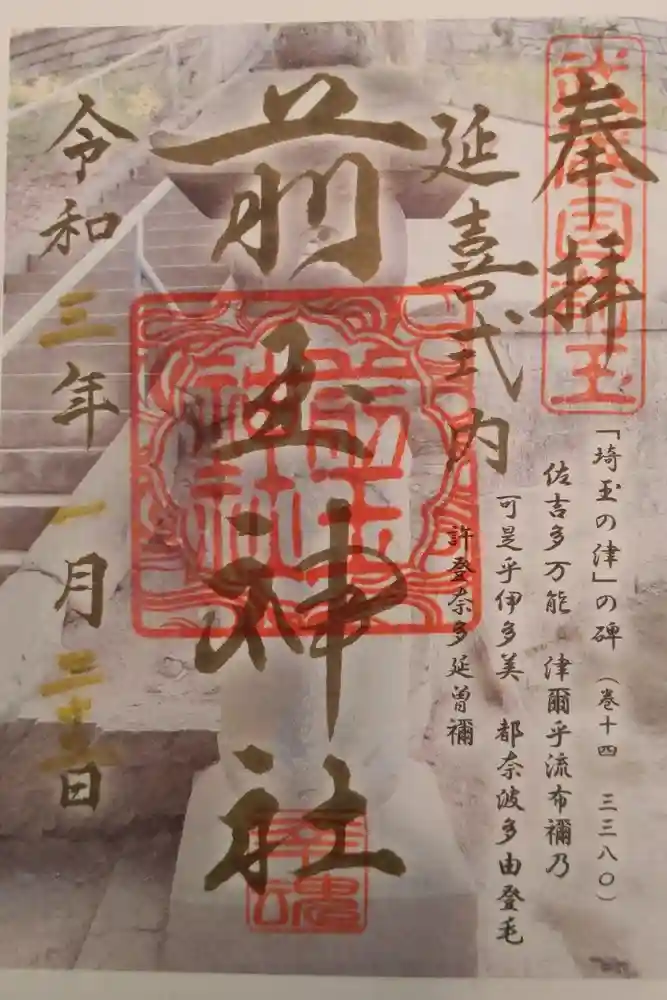 奉拝
武蔵国
玉
「埼玉の津」の碑 (巻十四 三三八〇)
佐吉多万能 津爾乎流布禰乃
可是乎伊多美 都奈波多由登毛
許登奈多延曽禰
延喜式内
前玉神社
前玉神社
幸魂
令和三年一月二十日